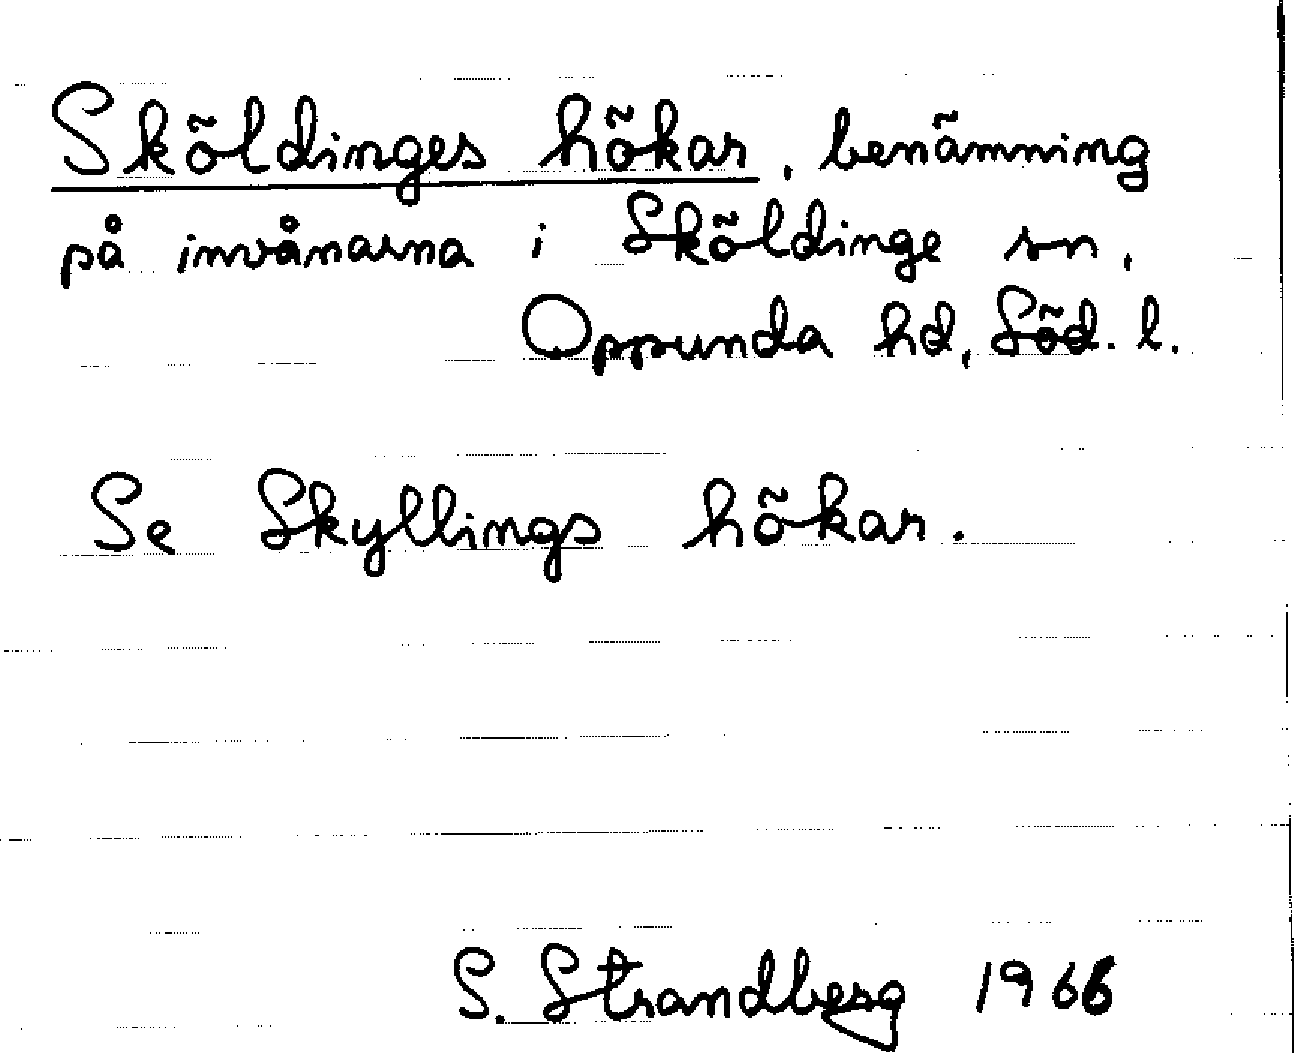 Sköldinges hökar, benämning
på invånarna i Sköldinge sn,
Oppunda hd, Söd. l.
Se Skyllings hökar.
S. Strandberg 1966